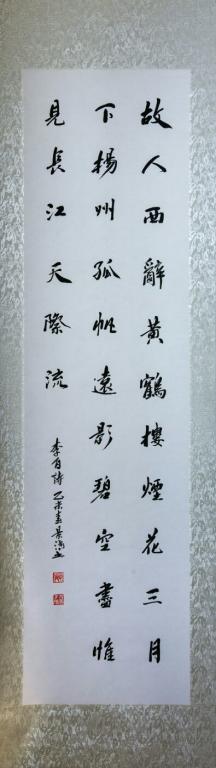 故人西辭黃鶴樓煙花三月
下揚州孤帆遠影碧空盡惟
見長江天際流
李白詩乙未春景海書